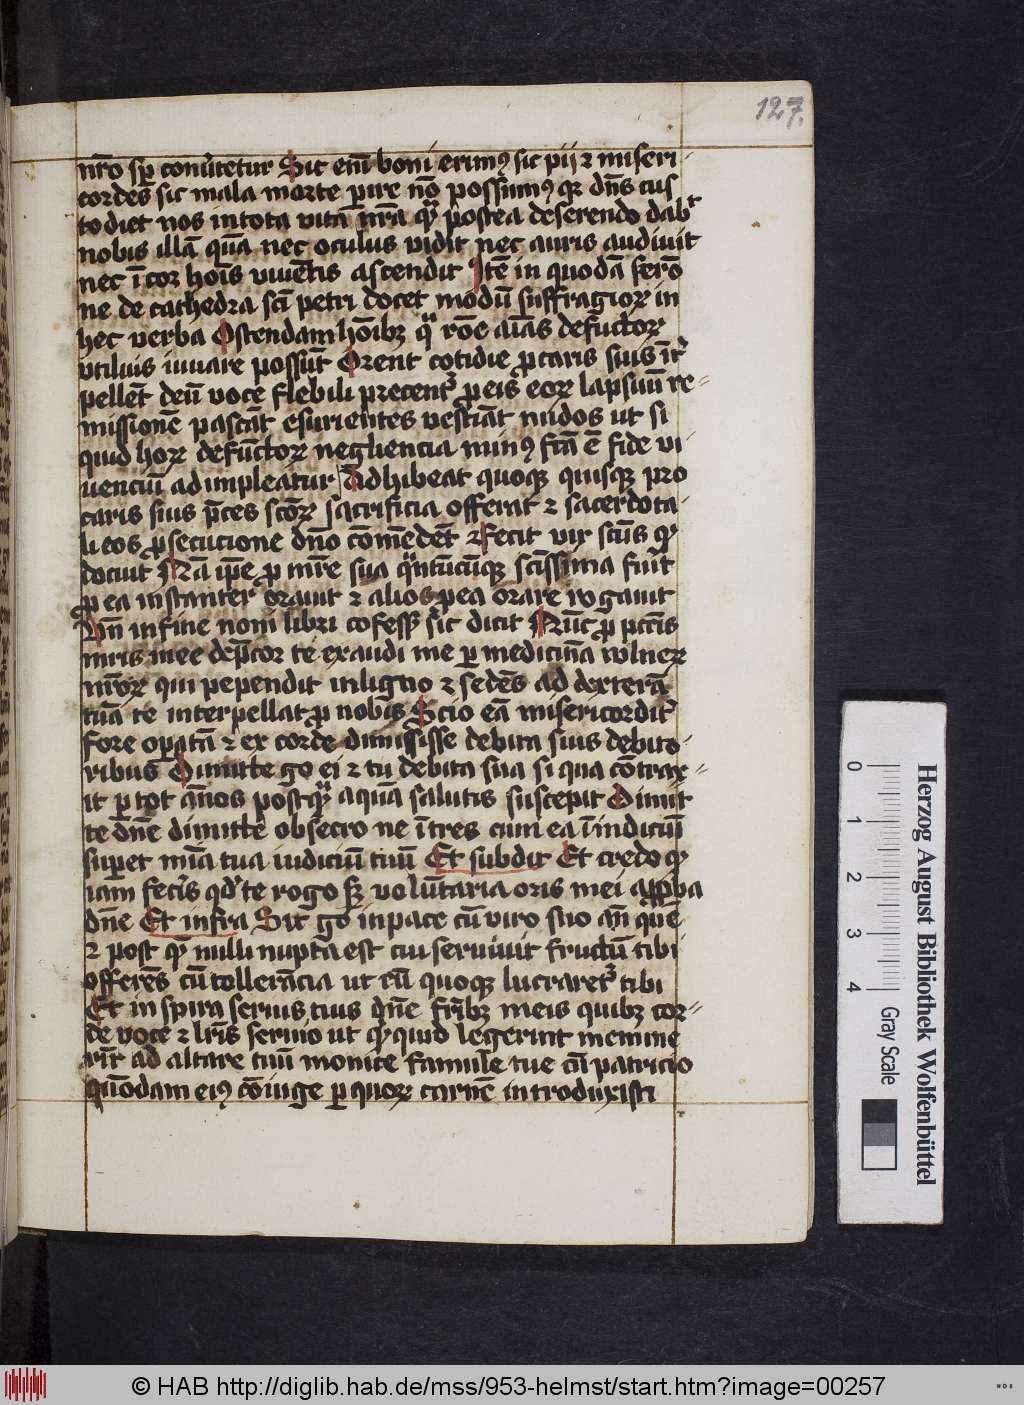 127.
nr̄o sꝑ conũtetur Sic em̄ boni erimꝰ sic pij ⁊ miseri
cordes sic mala morte ꝑire nō possumꝰ qr dn̄s cus
todiet nos in tota vita nr̄a qͥ postea deserendo dabᵗ
nobis illā quā nec oculus vidit nec auris audiuit
nec ī cor hoīs viuētis ascendit Itē in quodā sermō
ne de cathedra sci petri docet modū suffragioꝝ in
hec verba Ostendam hōibꝫ qͣ rōe aīas defuctoꝝ
vtilius iuuare possūt Orent cotidie ꝓ caris suis ītͬ
pellēt deū voce flebili precentͬ ꝓ eis eoꝝ lapsuū re
missionē pascāt esurientes vestiāt nudos ut si
quid hoꝝ defūctoꝝ negliencia minꝰ fc̄a ē fide vi
uenciū adimpleatur Adhibeat quoqꝫ quisqꝫ pro
caris suis p̄ces scōꝝ sacrificia offerat ⁊ sacerdota
li eos ꝓsecucione dn̄o cōmēdēt ⁊ fecit vir scūs qͥ
docuit Nā ip̄e ꝓ mr̄e sua qͣntūcūqꝫ sc̄issima fuit
ꝓ ea instanter orauit ⁊ alios ꝓ ea orare rogauit
Vn̄ in fine noni libri cōfess̉ sic dicit Nūc ꝓ pctīs
mris mee dep̄cor te exaudi me ꝑ medicinā vulneꝝ
nr̄oꝝ qui pependit in ligno ⁊ sedēs ad dexterā
tuā te interpellat ꝓ nobis Scio eā misericorditͬ
fore oꝑatā ⁊ ex corde dimisisse debita suis debito
ribus Dimitte go ei ⁊ tu debita sua si qua cōtrax
it ꝑ tot annos postqͣ aquā salutis suscepit Dimit
te dn̄e dimitte obsecro ne ītres cum ea ī iudiciū
superet mīa tua iudiciū tuū Et subdit Et credo qͥ
iam fecis qd̓ te rogo sꝫ volūtaria oris mei apꝓba
dn̄e Et infra Sit go in pace cū viro suo an̄ quē
⁊ post quē nulli nupta est cui seruiuit fructū tibi
offerēs cū tollerācia ut eū quoqꝫ lucraretͬ tibi
Et inspira seruis tuis dn̄e fr̄ibꝫ meis quibꝫ cor
de voce ⁊ lr̄is seruio ut qͥquid legerint memine
rīt ad altare tuū monice famule tue cū patricio
quōdam eiꝰ cōiuge ꝑ quoꝝ carnē introduxisti
Herzog August Bibliothek Wolfenbüttel
0 1 2 3 4
Gray Scale
© HAB http://diglib.hab.de/mss/953-helmst/start.htm?image=00257